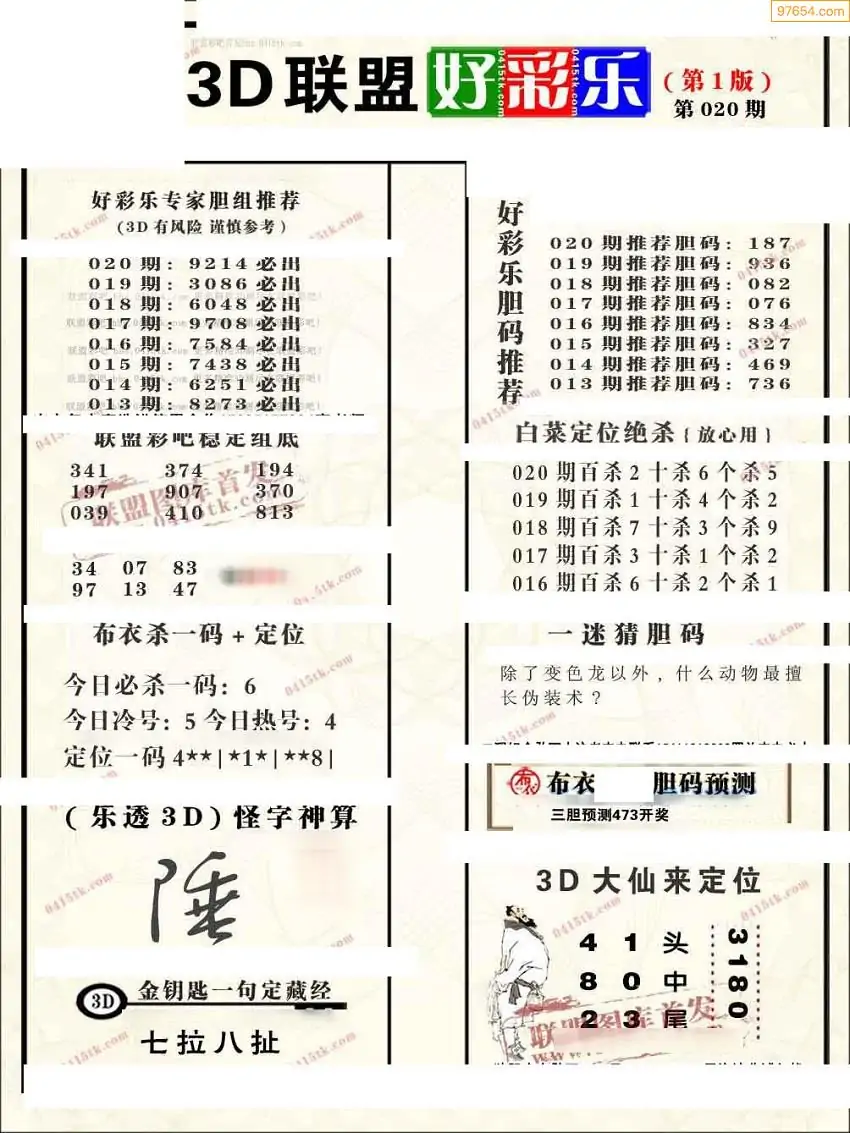 97654.com
3D联盟好彩乐
(第1版)
第020期
好彩乐专家胆组推荐
(3D有风险 谨慎参考)
020期: 9214必出
019期: 3086必出
018期: 6048必出
017期: 9708必出
016期: 7584必出
015期: 7438必出
014期: 6251必出
013期: 8273必出
联盟彩吧稳定组底
341 374 194
197 907 370
039 410 813
34 07 83
97 13 47
布衣杀一码+定位
今日必杀一码: 6
今日冷号: 5 今日热号: 4
定位一码4**|*1*|**8|
(乐透3D)怪字神算
3D 金钥匙一句定藏经
七拉八扯
好彩乐胆码推荐
020期推荐胆码: 187
019期推荐胆码: 936
018期推荐胆码: 082
017期推荐胆码: 076
016期推荐胆码: 834
015期推荐胆码: 327
014期推荐胆码: 469
013期推荐胆码: 736
白菜定位绝杀{放心用}
020期百杀2十杀6个杀5
019期百杀1十杀4个杀2
018期百杀7十杀3个杀9
017期百杀3十杀1个杀2
016期百杀6十杀2个杀1
一迷猜胆码
除了变色龙以外，什么动物最擅
长伪装术？
布衣 胆码预测
三胆预测473开奖
3D大仙来定位
4 1 头
8 0 中
2 3 尾
3180
联盟图库首发
0415tk.com